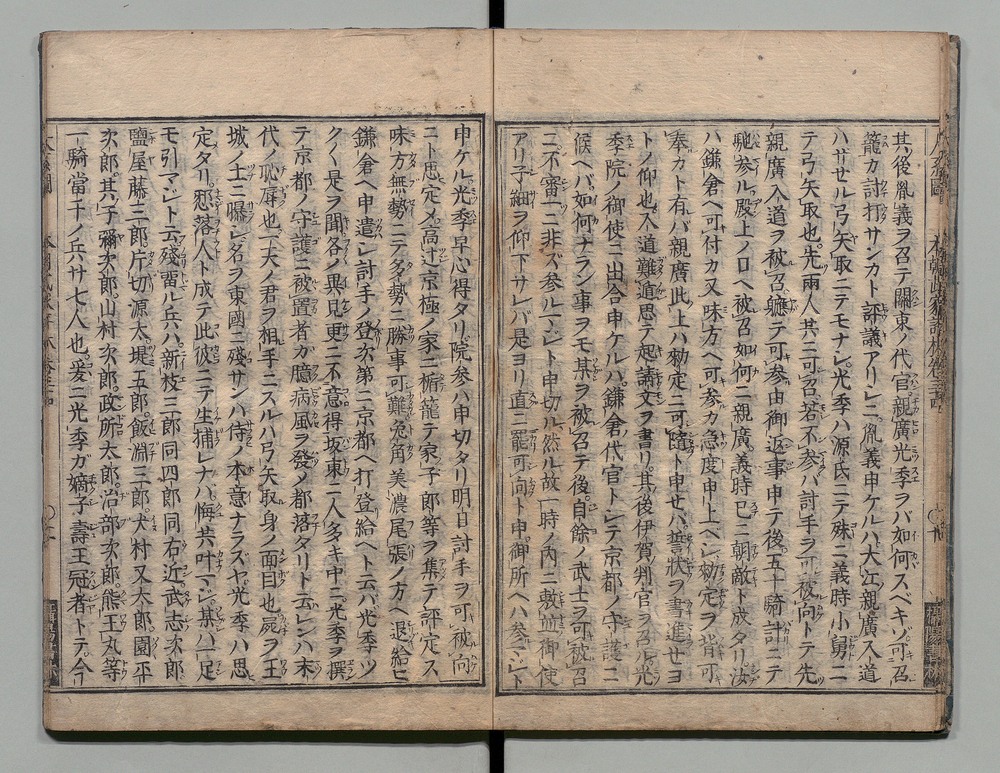 其後胤義ヲ召テ關東ノ代官親廣光季ヲバ如何スベキソ可召
籠カ討打サンカト評議アリシニ胤義申ケルハ大江親廣入道
ハサせル弓矢取ニテモナシ光季ハ源氏ニテ殊ニ義時小舅ニ
テ弓矢取也先兩人共ニ可召若不参バ討手ヲ可被向トテ先
親廣入道ヲ被召聽テ可参由御返事申テ後五十騎計ニテ
馳参ル殿上ノ口ヘ被召如何ニ親廣義時已ニ朝敵ト成タリ汝
ハ鎌倉ヘ可付カ又味方ヘ可参カ急度申上ベシ勅定ヲ背可
奉カト有バ親廣此上ハ勅定ニ可隨ト申せバ誓状ヲ書進せヨ
トノ仰也入道難遁思テ起請文ヲ書リ其後伊賀判官ヲ召シ光
季院ノ御使ニ出合申ケルハ鎌倉代官トシテ京都ノ守護ニ
候ヘバ如何ナラン事ヲモ某ヲ被召テ後自餘ノ武士ヲ可被召
ニ不審ニ非ズ参ルマシト申切ル然ル故一時ノ内ニ敷並御使
アリ子細ヲ仰下サレバ是ヨリ直ニ罷可向ト申御所ヘハ参マシト
申ケル光季早心得タリ院参ハ申切タリ明日討手ヲ可被向
ニト思定メ高辻京極ノ家ニ楯籠テ家子郎等ヲ集テ評定ス
味方無勢ニテ多勢ニ勝事可難兔角美濃尾張ノ方ヘ退給ヒ
鎌倉ヘ申遣シ討手ノ登次第ニ京都ヘ打登給ヘト云バ光季ツ
クく是ヲ聞各ノ異見更ニ不意得坂東ニ人多キ中ニ光季ヲ撰
テ京都ノ守護ニ被置者カ臆病風ヲ發メ都落タリト云レンハ末
代ノ恥辱也一天ノ君ヲ相手ニスルハ弓矢取身ノ面目也屍ヲ王
城ノ土ニ曝シ名ヲ東國ニ殘サンハ侍ノ本意ナラズヤ光季ハ思
定タリ憖落人ト成テ此彼ニテ生捕レナハ悔共叶マシ某ハ一足
モ引マシト云殘留ル兵ハ新枝三郎同四郎同右近武志次郎
鹽屋藤三郎片切源太堤五郎飯淵三郎犬村又太郎園平
次郎其子彌次郎山村次郎政所太郎治部次郎熊王丸等
一騎當千ノ兵廿七人也爰ニ光季ガ嫡子壽王冠者トテ今